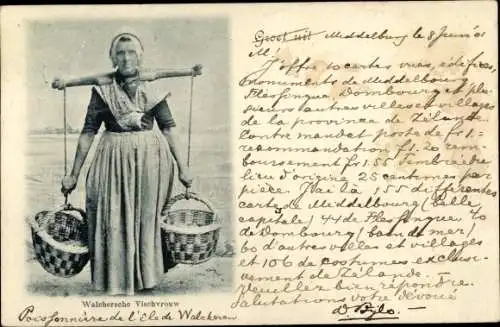 Groet uit Middelburg le 8 Juin 01
M.
J'offre 10 cartes vues, édifices,
monuments de Middelbourg
Flessingue, Dombourg et plu-
sieurs autres villes et villages
de la province de Zélande
contre mandat poste de fr 1=
recommandation fr 1.20 rem-
boursement fr 1.55 Timbre de
lieu d'origine 25 centimes par
pièce. J'ai là 155 différentes
carte de Middelbourg (belle
capitale) 44 de Flessingue 40
de Dombourg (bain de mer)
60 d'autres villes et villages
et 106 de costumes exclusi-
vement de Zélande.
Veuillez bien répondre.
Salutations votre dévoué
D Bylo.
Walchersche Vischvrouw
Poissonnière de l'Ile de Walcheren